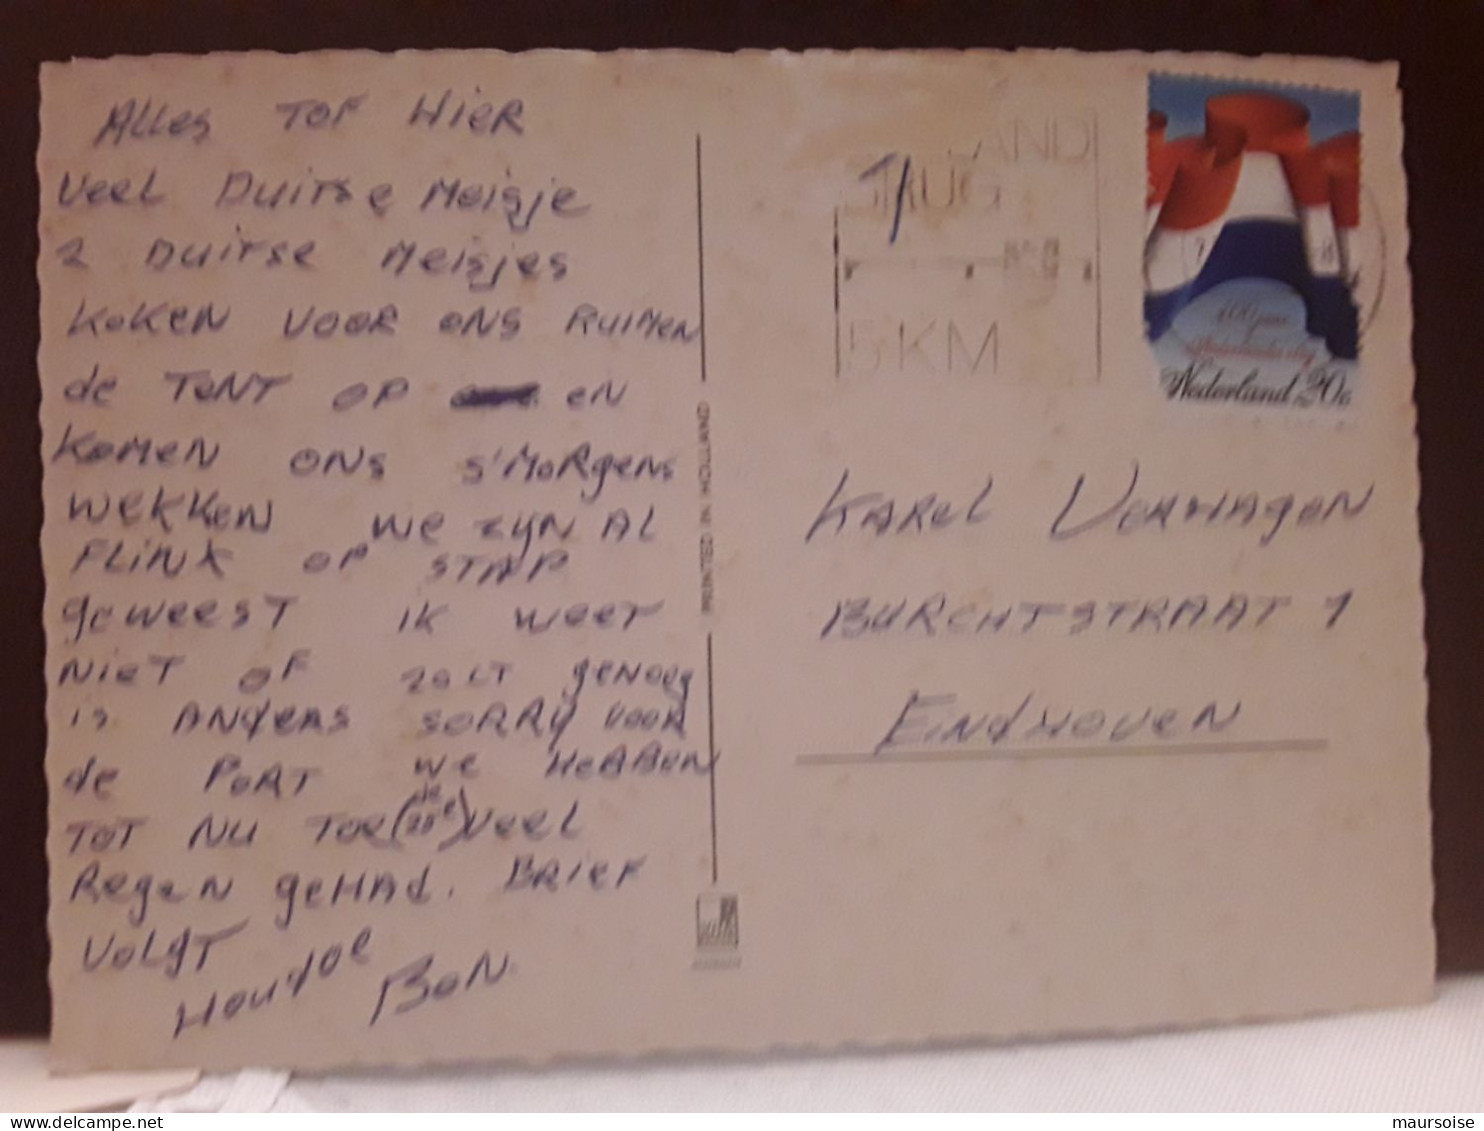 Alles TOF Hier
Veel Duitse Meisje
2 Duitse Meisjes
Koken voor ons Ruimen
de Tent op en
Komen ons s'Morgens
wekken we zijn al
Flink op stap
geweest ik weet
niet of zo lt genoeg
is anders sorry voor
de Port we hebben
tot nu toe (28e) veel
Regen gehad. Brief
volgt
Houdoe
Bon
AND
BRUG
5 KM
400 jaar
Nederland 20c
Karel Verhagen
Burchtstraat 1
Eindhoven
maursoise
delcampe.net